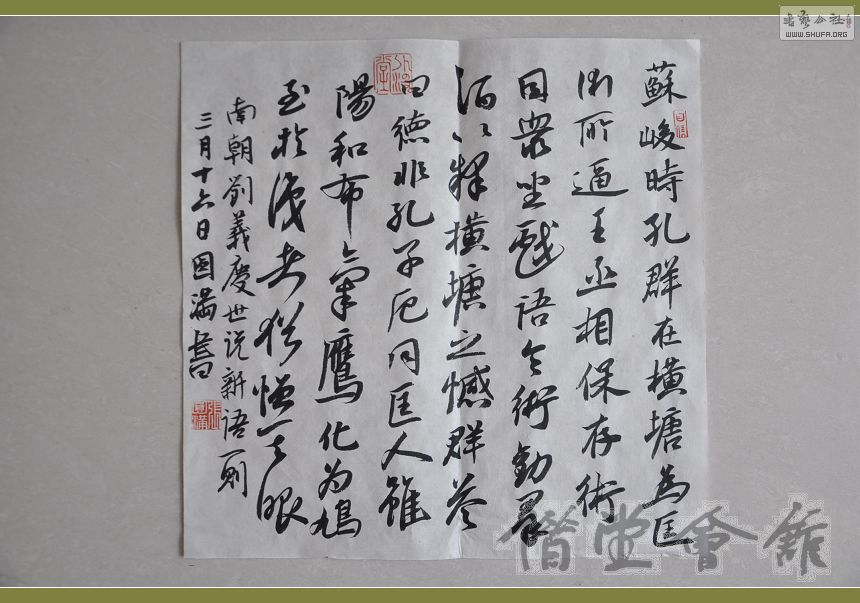 蘇峻時孔群在橫塘為匡
術所逼王丞相保存術
因眾坐戲語令術勸群
酒以釋橫塘之憾群答
曰德非孔子厄同匡人雖
陽和布氣鷹化為鳩
至於識者猶憎其眼
南朝劉義慶世说新语一則
三月十六日圆滿書
WWW.SHUFA.ORG